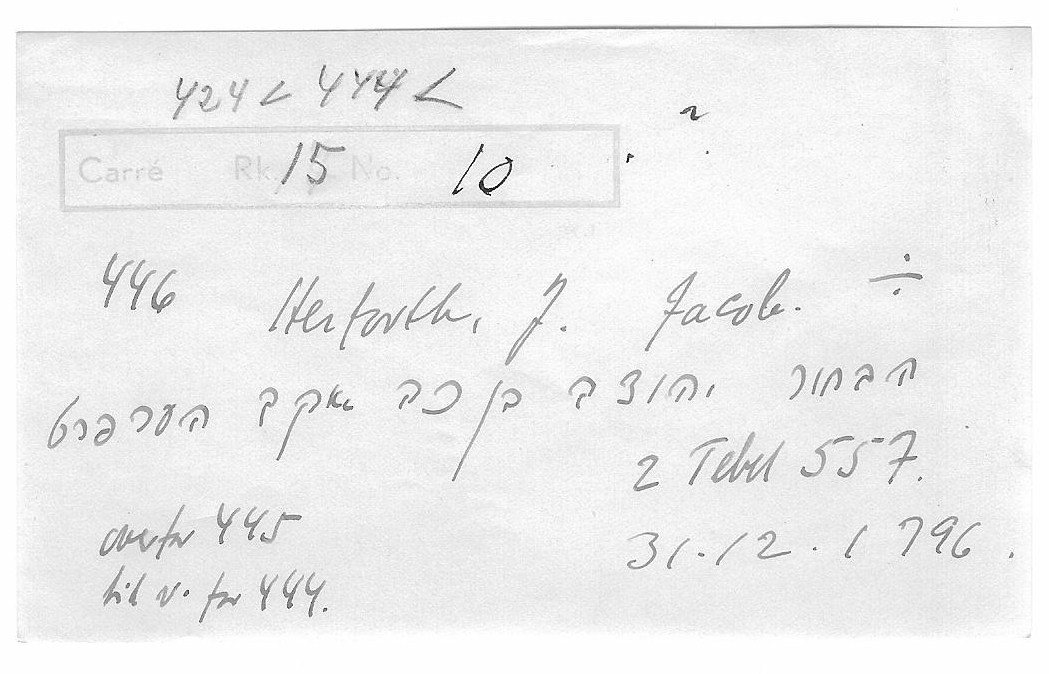 424 < 444 <
Carré Rk. 15 No. 10
446 Herforth, J. Jacob. ÷
הבחור יהודה בן כה יאקב הערפרט
2 Tebet 557.
31.12.1796.
overfor 445
til v. for 444.